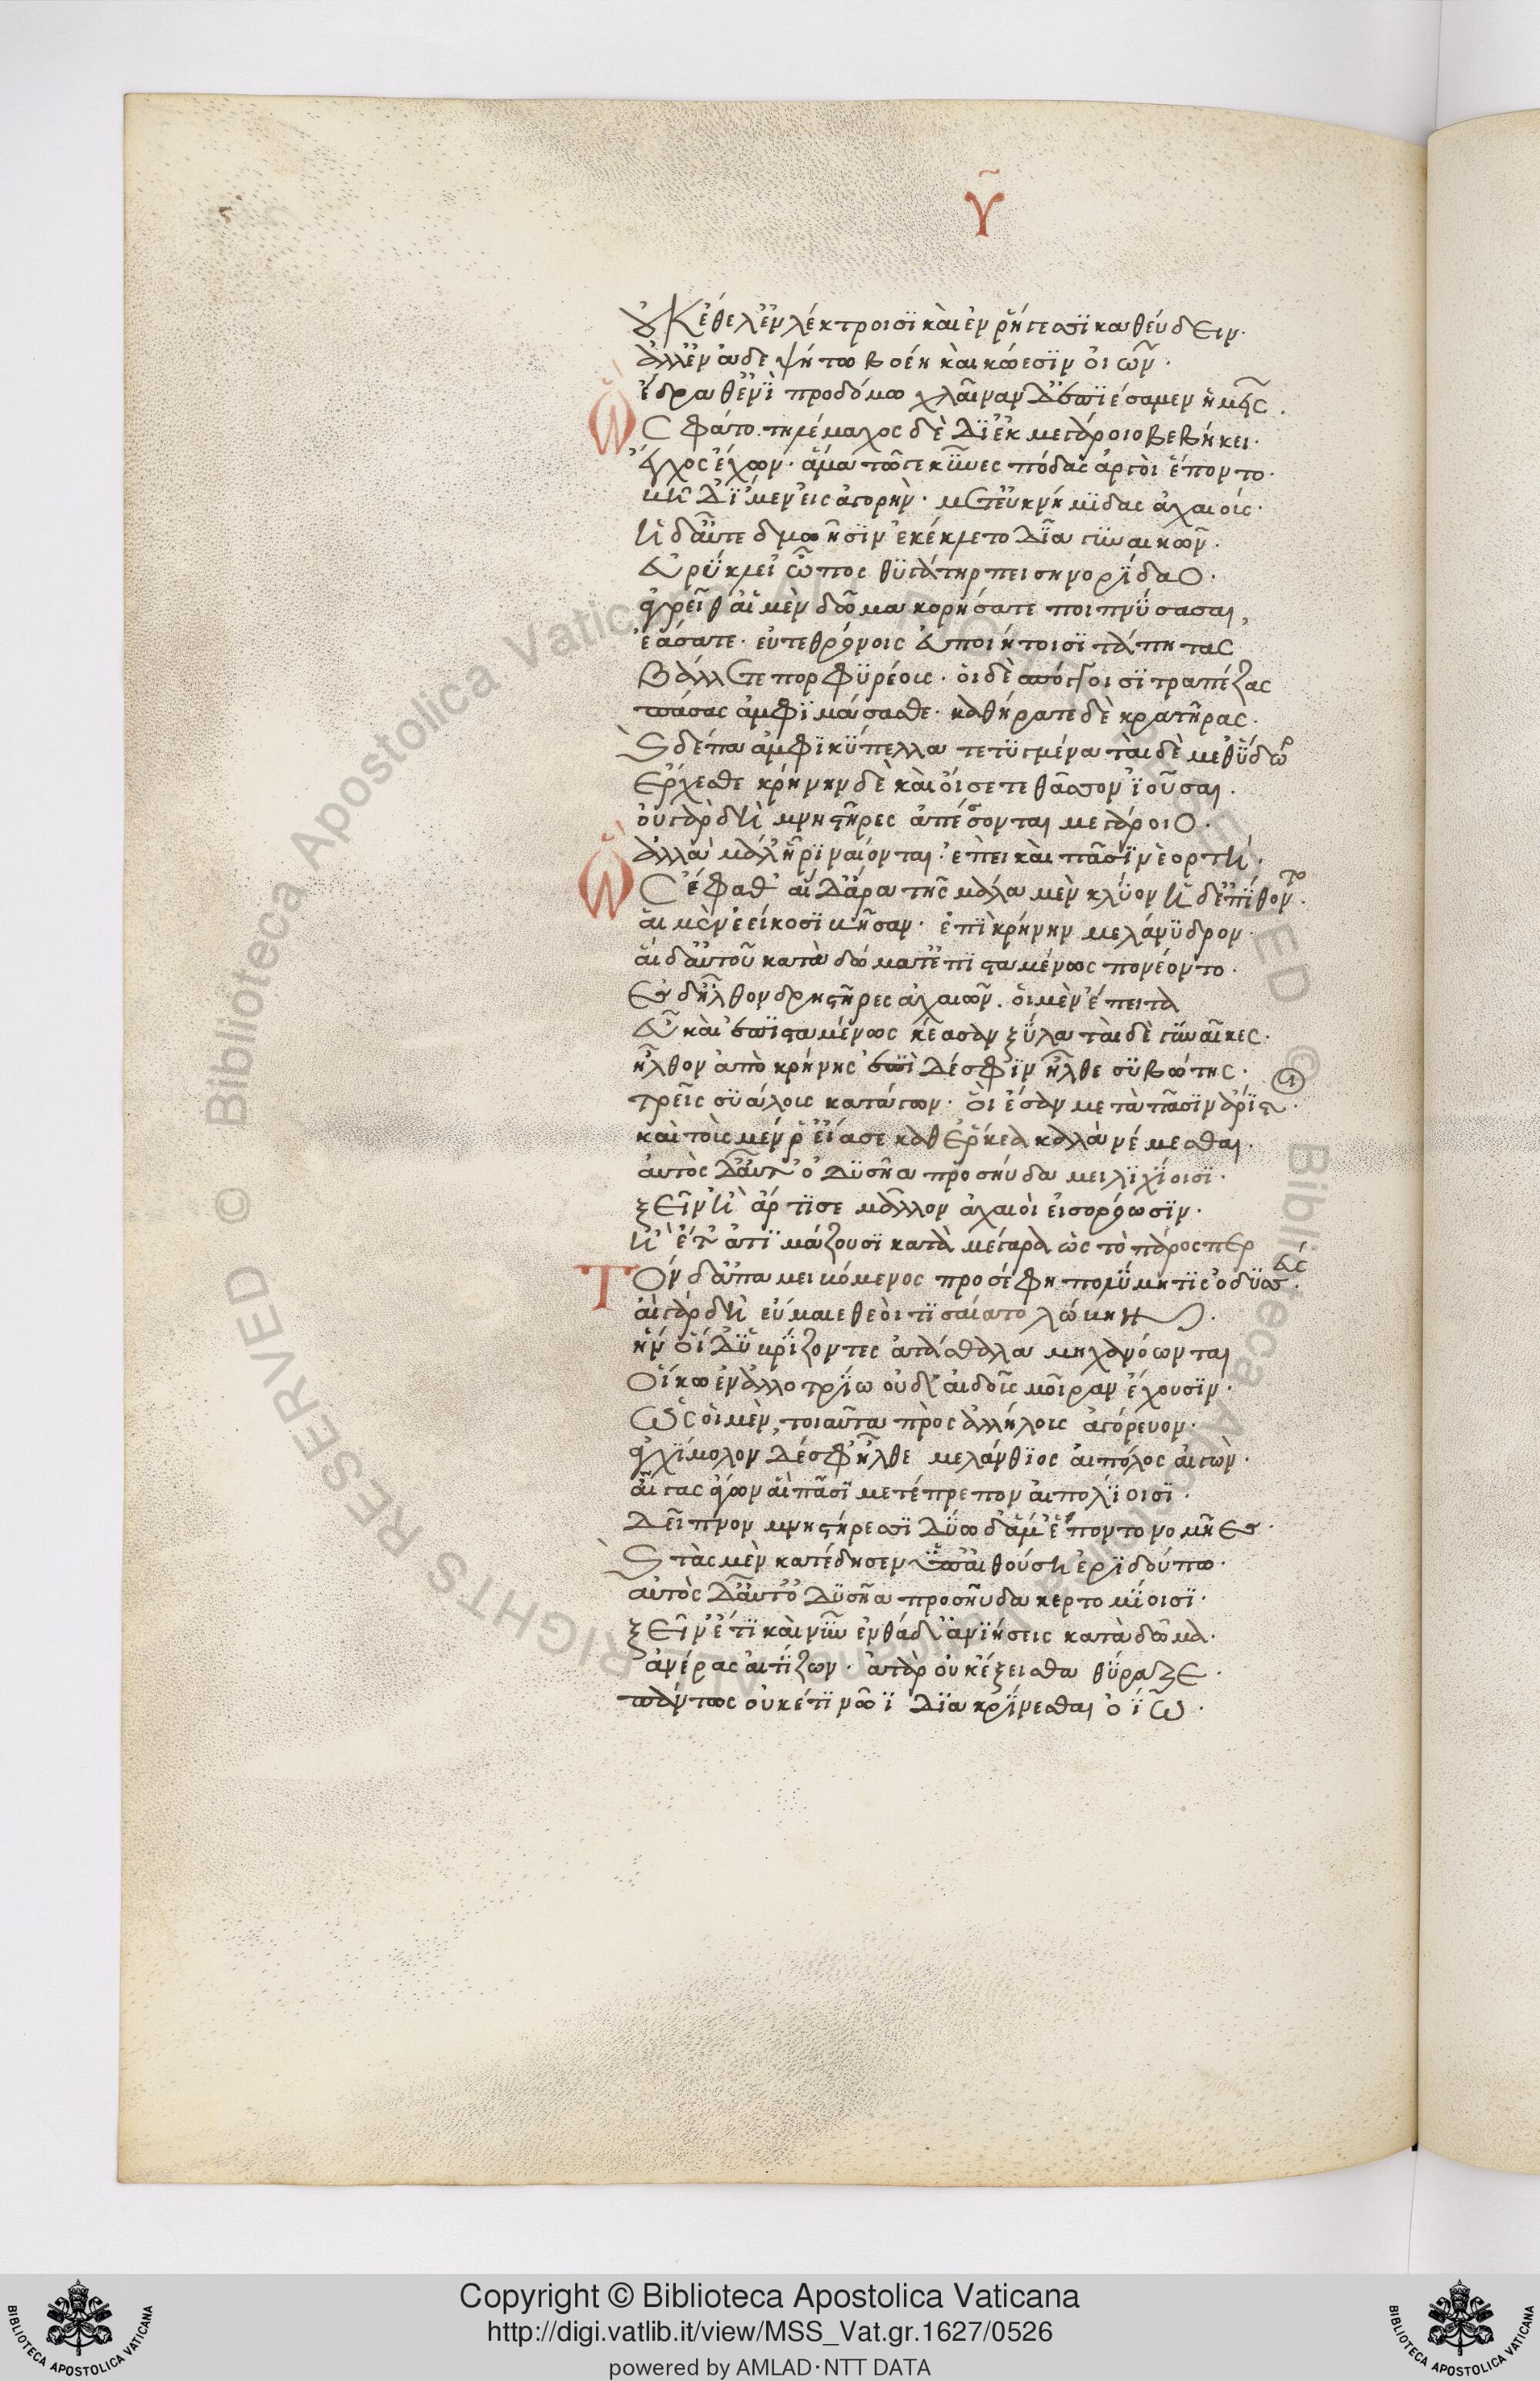 Υ
οὐκ ἔθελ' ἐν λέκτροισϊ καὶ ἐν ῥήγεσσϊ καθεύδειν·
ἀλλ' ἐν ἀδεψήτω βοέη καὶ κώεσϊν οἰῶν·
ἔδραθ' ἐνὶ προδόμω χλαῖναν δ' ἐπϊέσαμεν ἡμεῖς.
Ὣς φάτο. τηλέμαχος δὲ δϊ' ἐκ μεγάροιο βεβήκει·
ἔγχος ἔχων· ἅμα τῶγε κύνες πόδας ἀργοὶ ἕποντο·
βῆ δ' ἴμεν εἰς ἀγορὴν· μετ' εὐκνήμϊδας ἀχαιούς·
ἡ δ' αὖτε δμωῇσϊν ἐκέκλετο δῖα γυναικῶν·
εὐρύκλει' ὦπος θϋγάτηρ πεισηνορΐδαο·
ἀγρεῖθ' αἱ μὲν δῶμα κορήσατε ποιπνΰσασαι,
ἐάσατε· ἔν τε θρόνοις εὐποιήτοισϊ τάπητας
βάλλετε πορφϋρέους· οἱ δὲ σπόγγοισϊ τραπέζας
πάσας ἀμφϊμάσασθε· καθήρατε δὲ κρατῆρας·
καὶ δέπα ἀμφϊκϋπελλα τετϋγμένα ταὶ δὲ μεθ' ὕδωρ
ἔρχεσθε κρήνην δὲ καὶ οἴσετε θᾶσσον ἰοῦσαι·
οὐ γὰρ δὴ μνηστῆρες ἀπέσσονται μεγάροιο·
ἀλλὰ μάλ' ἦρϊ νέονται· ἐπεὶ καὶ πᾶσϊν ἑορτή·
Ὣς ἔφαθ' αἱ δ' ἄρα τῆς μάλα μὲν κλύον ἡ δ' ἐπίθοντο·
αἱ μὲν ἐείκοσϊ βῆσαν· ἐπὶ κρήνην μελάνϋδρον·
αἱ δ' αὐτοῦ κατὰ δώματ' ἐπϊσταμένως πονέοντο·
ἐς δ' ἦλθον δρηστῆρες ἀχαιῶν. οἱ μὲν ἔπειτα
εὖ καὶ ἐπϊσταμένως κέασαν ξύλα ταὶ δὲ γυναῖκες·
ἦλθον ἀπὸ κρήνης ἐπὶ δέ σφϊν ἦλθε σϋβώτης·
τρεῖς σϋάλους κατάγων· οἳ ἔσαν μετὰ πᾶσϊν ἄρϊστοι·
καὶ τοὺς μέν ῥ' εἴασε καθ' ἕρκεα καλὰ νέμεσθαι·
αὐτὸς δ' αὖτ' ὀδϋσῆα προσηύδα μειλϊχίοισϊ·
ξεῖν' ἦ ἄρ τΐ σε μᾶλλον ἀχαιοὶ εἰσορόωσϊν·
ἦ ἔτ' ἀτϊμάζουσϊ κατὰ μέγαρα ὡς τὸ πάρος περ
Τὸν δ' ἀπαμειβόμενος προσέφη πολΰμητϊς ὀδϋσσεύς·
αἲ γὰρ δὴ εὔμαιε θεοὶ τϊσαίατο λώβην·
ἣν οἵδ' ὑβρίζοντες ἀτάσθαλα μηχανόωνται
οἴκω ἐν ἀλλοτρίω οὐδ' αἰδοῦς μοῖραν ἔχουσϊν·
Ὣς οἱ μὲν, τοιαῦτα πρὸς ἀλλήλους ἀγόρευον·
ἀγχΐμολον δέ σφ' ἦλθε μελάνθϊος αἰπόλος αἰγῶν·
αἶγας ἄγων αἳ πᾶσϊ μετέπρεπον αἰπολΐοισϊ·
δεῖπνον μνηστήρεσσϊ δύω δ' ἅμ' ἕποντο νομῆες·
καὶ τὰς μὲν κατέδησεν ὑπ' αἰθούσῃ ἐρϊδούπω·
αὐτὸς δ' αὖτ' ὀδϋσῆα προσηῦδα κερτομΐοισϊ·
ξεῖν' ἔτϊ καὶ νῦν ἐνθάδ' ἀνϊήσεις κατὰ δῶμα·
ἀνέρας αἰτΐζων· ἀτὰρ οὐκ ἔξεισθα θύραζε·
πάντως οὐκέτϊ νῶϊ δϊακρΐνεσθαι ὀΐω·
Copyright © Biblioteca Apostolica Vaticana
http://digi.vatlib.it/view/MSS_Vat.gr.1627/0526
powered by AMLAD·NTT DATA